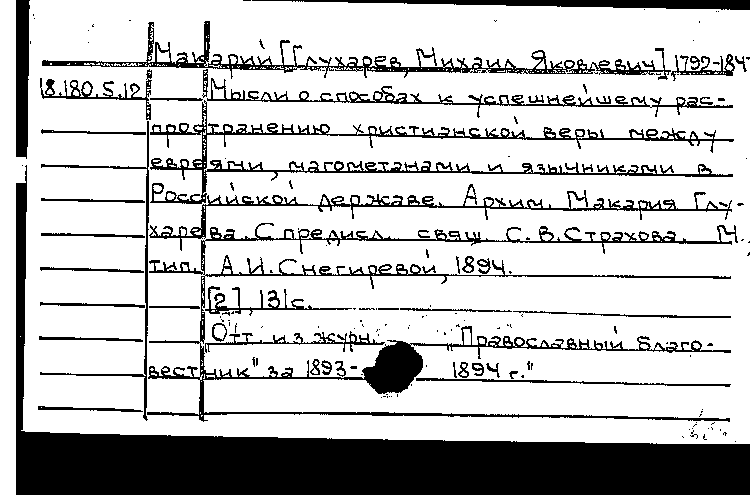 Макарий [Глухарев, Михаил Яковлевич], 1792-184
18.180.5.12 Мысли о способах к успешнейшему рас-
пространению христианской веры между
евреями, магометанами и язычниками в
Российской державе. Архим. Макария Глу-
харева. С предисл. свящ. С.В.Страхова. М.,
тип. А.И.Снегиревой, 1894.
[2], 131 с.
"Отт. из журн. "Православный благо-
вестник" за 1893- 1894 г."